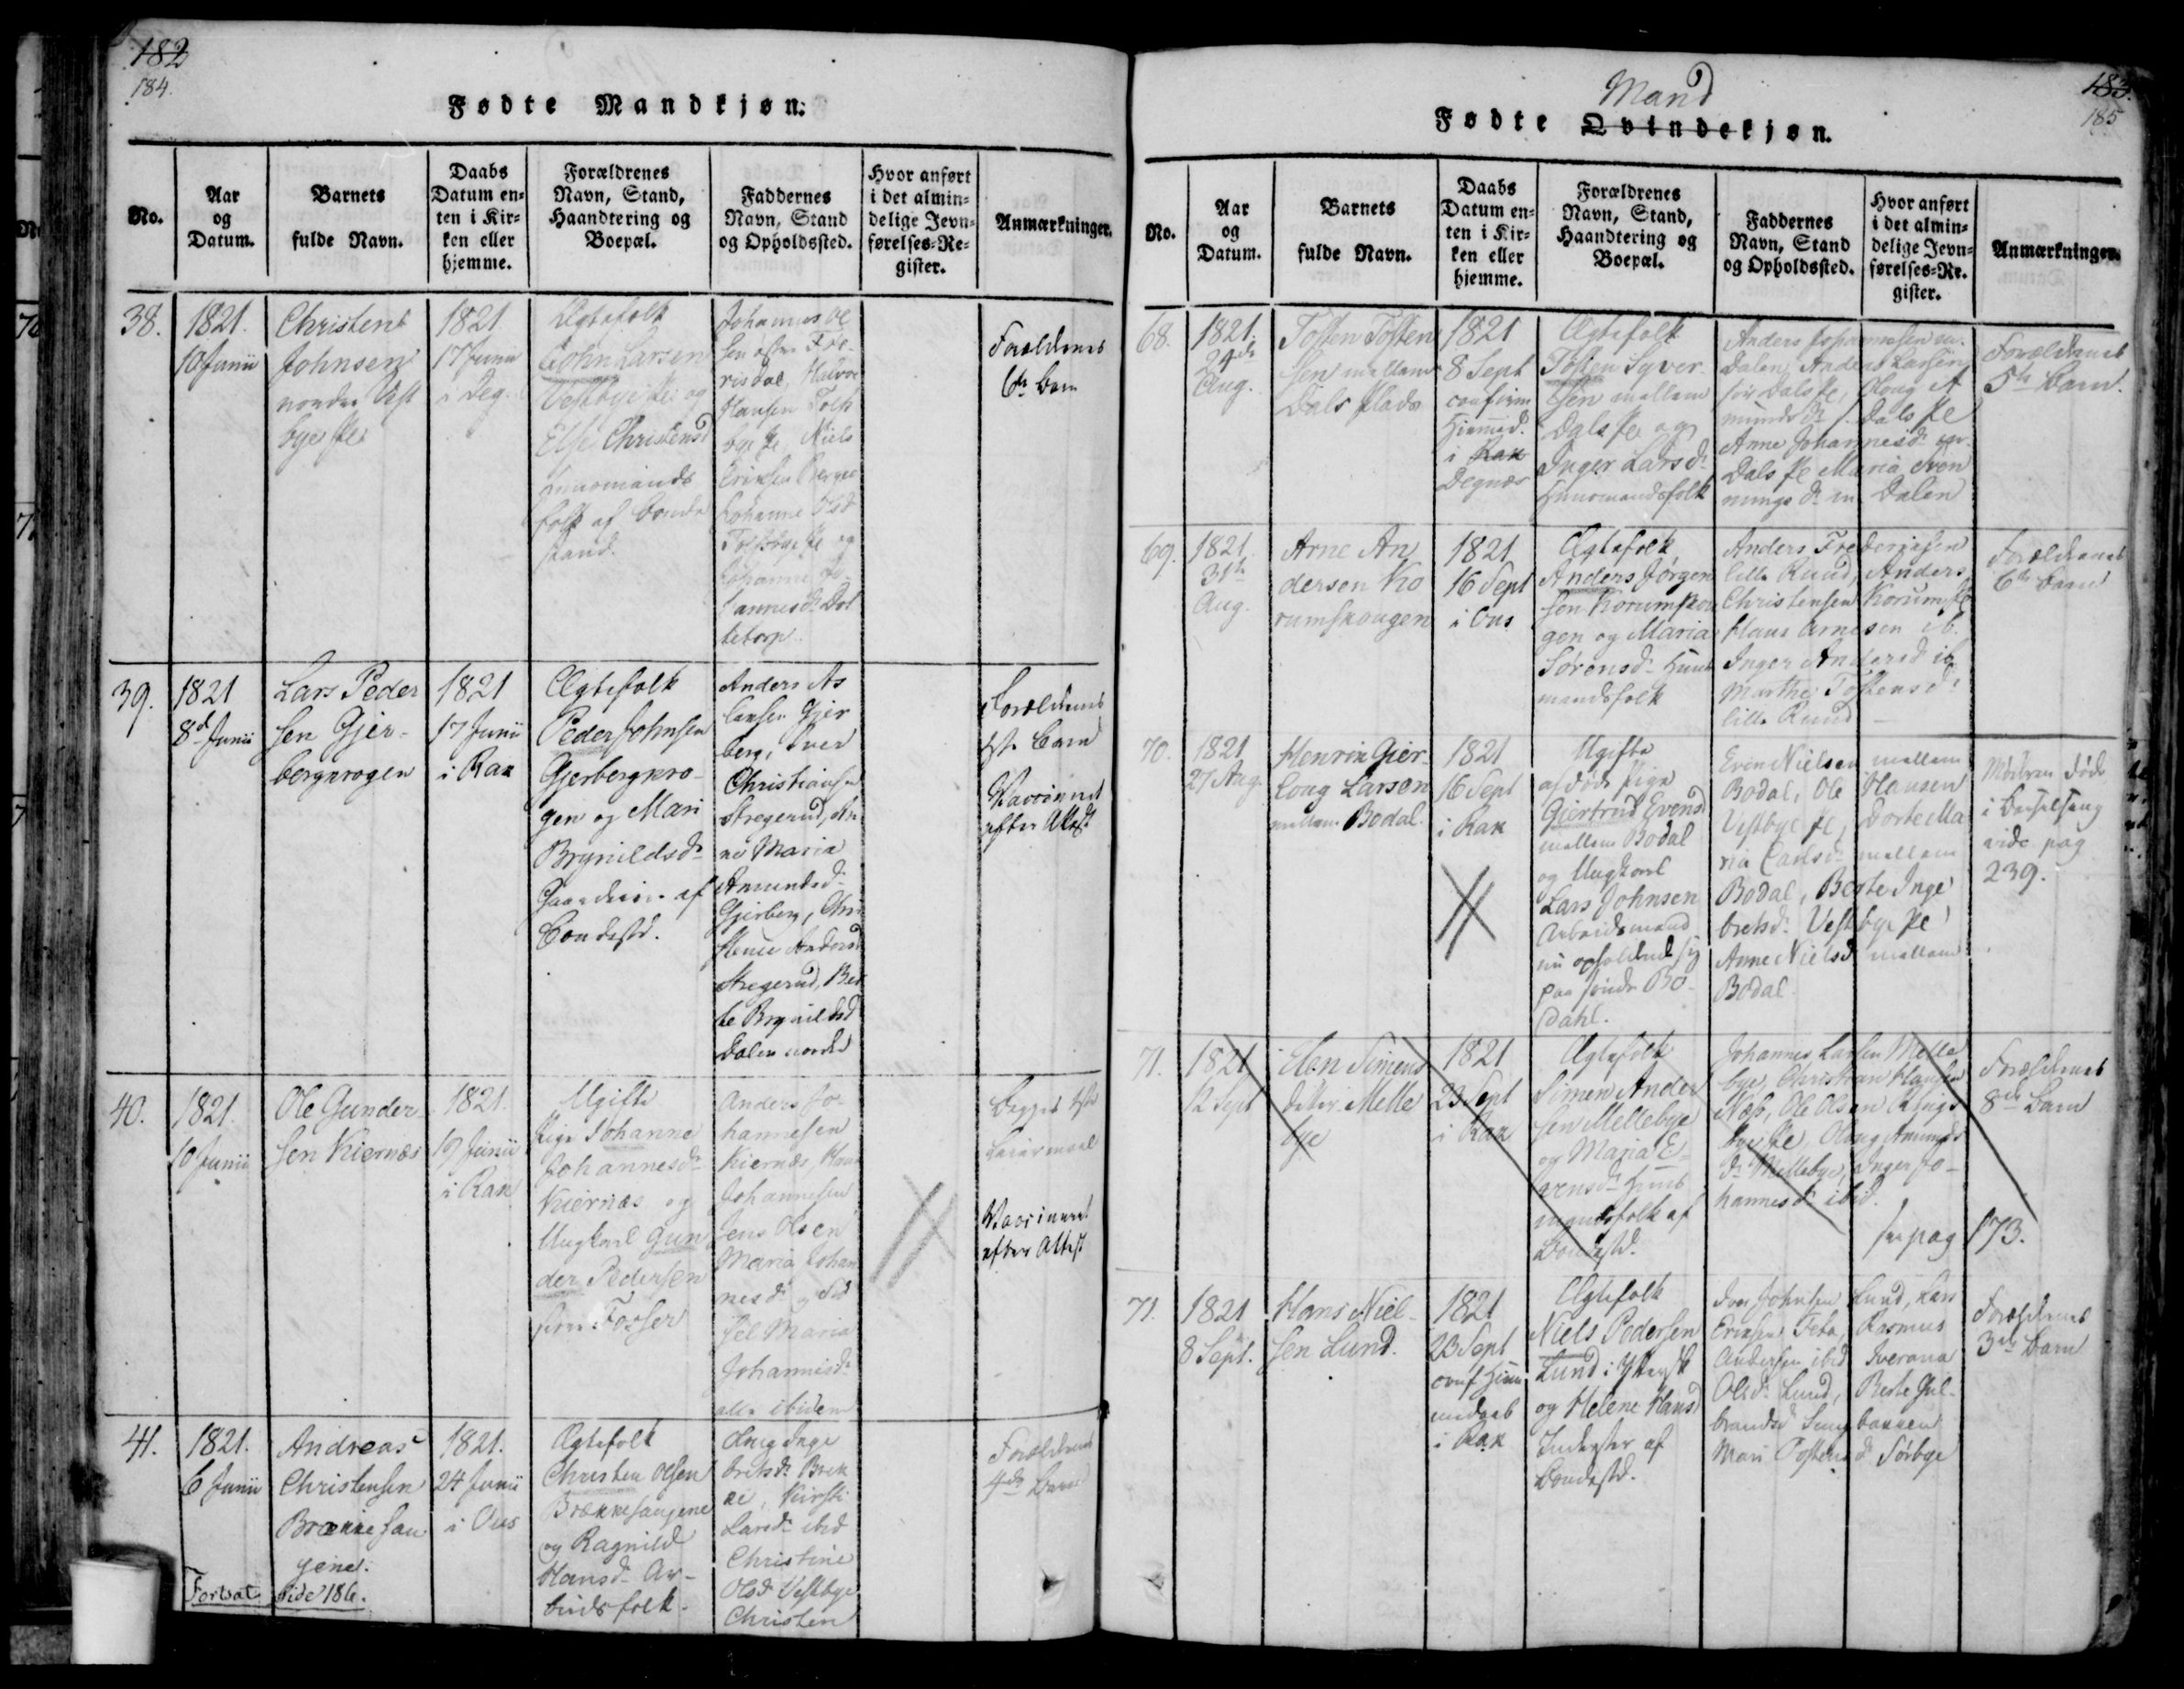 182
184.
Fødte Mandkjøn.
No.
Aar
og
Datum.
Barnets
fulde Navn.
Daabs
Datum en-
ten i Kir-
ken eller
hjemme.
Forældrenes
Navn, Stand,
Haandtering og
Boepæl.
Faddernes
Navn, Stand
og Opholdssted.
Hvor anført
i det almin-
delige Jevn-
førelses-Re-
gister.
Anmærkninger.
38.
1821.
10 Junii
Christen
Johnsen
nordre Vest
bye
1821
17 Junii
i Deg.
Ægtefolk
John Larsen
Vestbye og
Else Christensd
Huusmands
folk af Bonde
stand.
Johannes Ol
sen
risdal, Halvor
Hansen
Niels
Eriksen
Johanne Olsd
og
Johanne Jo
hannesdr
Forældrenes
6te Barn
39.
1821
8d Junii
Lars Peder
sen Gjer-
bergkrogen
1821
17 Junii
i Rak
Ægtefolk
Peder Johnsen
Gjerbergkro-
gen og Mari
Brynildsdr
af
Bondestd.
Anders As
lansen Gjer
berg, Iver
Christiansen
Stregerud, An
ne Maria
Amundsdr
Gjerberg, Chri
stense Andersd
Stregerud, Ber
te Brynildsd
Dalen nordre
Forældrenes
1ste Barn
Vaccineret
efter Attest
40.
1821.
10 Junii
Ole Gunder
sen Kiernæs
1821.
19 Junii
i Rak
Ugifte
Pige Johanne
Johannesdr
Kiernæs og
Ungkarl Gun
der Pedersen
Fosser
Anders Jo-
hannesen
Kiernæs, Hans
Johannesen
Jens Olsen
Maria Johan
nesdr og Sid
sel Maria
Johannesdr
alle ibidem
Begges 1ste
Leiermaal
Vaccineret
efter Attest
41.
1821.
6 Junii
Andreas
Christensen
Brække han
gene.
1821.
24 Junii
i Ous
Ægtefolk
Christen Olsen
Brækkehangene
og Ragnild
Hansdr Ar-
beidsfolk.
Inge
bretsdr Bræk
ke, Kirsti
Larsdr ibid
Christine
Olsdr Vestbye
Christen
Forældrenes
4de Barn
Fortsat side 186.
183.
185
Mand
Fødte Qvindekjøn.
No.
Aar
og
Datum.
Barnets
fulde Navn.
Daabs
Datum en-
ten i Kir-
ken eller
hjemme.
Forældrenes
Navn, Stand,
Haandtering og
Boepæl.
Faddernes
Navn, Stand
og Opholdssted.
Hvor anført
i det almin-
delige Jevn-
førelses-Re-
gister.
Anmærkninger.
68.
1821.
24de
Aug.
Tosten Tosten
sen mellem
Dals Plads
1821
8 Sept
confirm
Hiemmed.
i Rak
Degnæs
Ægtefolk
Tosten Syver
sen mellem
Dals Pe og
Inger Larsdr
Huusmandsfolk
Anders Johannesen m.
Dalen, Anders Larsen
Dals Pe, Oloug A
mundsdr Dals Pe
Anne Johannesdr
Dals Pe Maria Svon
nungsdr m Dalen
Forældrenes
5te Barn.
69.
1821.
31te
Aug.
Arne An
dersen Ko
rumskougen
1821
16 Sept
i Ous
Ægtefolk
Anders Jørgen
sen Korumskou
gen og Maria
Sørensdr Huus
mandsfolk
Anders Frederiksen
lille Ruud, Anders
Christensen Korum
Hans Arnesen ib.
Inger Andersd ib
Marthe Tostensdr
lille Ruud
Forældrenes
6te Barn
70.
1821
27 Aug.
Henrik Gier-
loug Larsen
mellem Bodal.
1821
16 Sept
i Rak
Ugifte
afdøde Pige
Giertrud Evensd
mellem Bodal
og Ungkarl
Lars Johnsen
Arbeidsmand
nu opholdende sig
paa søndre Bo-
dahl.
Even Nielsen mellem
Bodal, Ole Hansen
Vestbye Pe, Dorte Ma
ria Carlsdr mellem
Bodal, Berte Inge
bretsd. Vestbye Pe
Anne Nielsd mellem
Bodal.
Moderen døde
i Barselseng
vide pag
239.
71.
1821
12 Sept
Elen Simens
datter Melle
bye
1821
23 Sept
i Rak
Ægtefolk
Simen Ander
sen Mellebye
og Maria E-
vensdr Huus
mandsfolk af
Bondestd.
Johannes Larsen Melle
bye, Christian Hansen
Næs, Ole Olsen Krogs
bye Pe, Oloug Amunds
dr Mellebye, Inger Jo-
hannesdr ibid.
Forældrenes
8de Barn
see pag 173.
71.
1821
8 Sept.
Hans Niel-
sen Lund.
1821
23 Sept
conf Hiem
medaab
i Rak
Ægtefolk
Niels Pedersen
Lund i
og Helene Hansd
Inderster af
Bondestd.
Iver Johnsen Lund, Lars
Eriksen Rasmus
Andersen ibid
Olsdr Lund, Berte Gul-
brandsd
Mari Tostensd Sørbye
Forældrenes
3de Barn